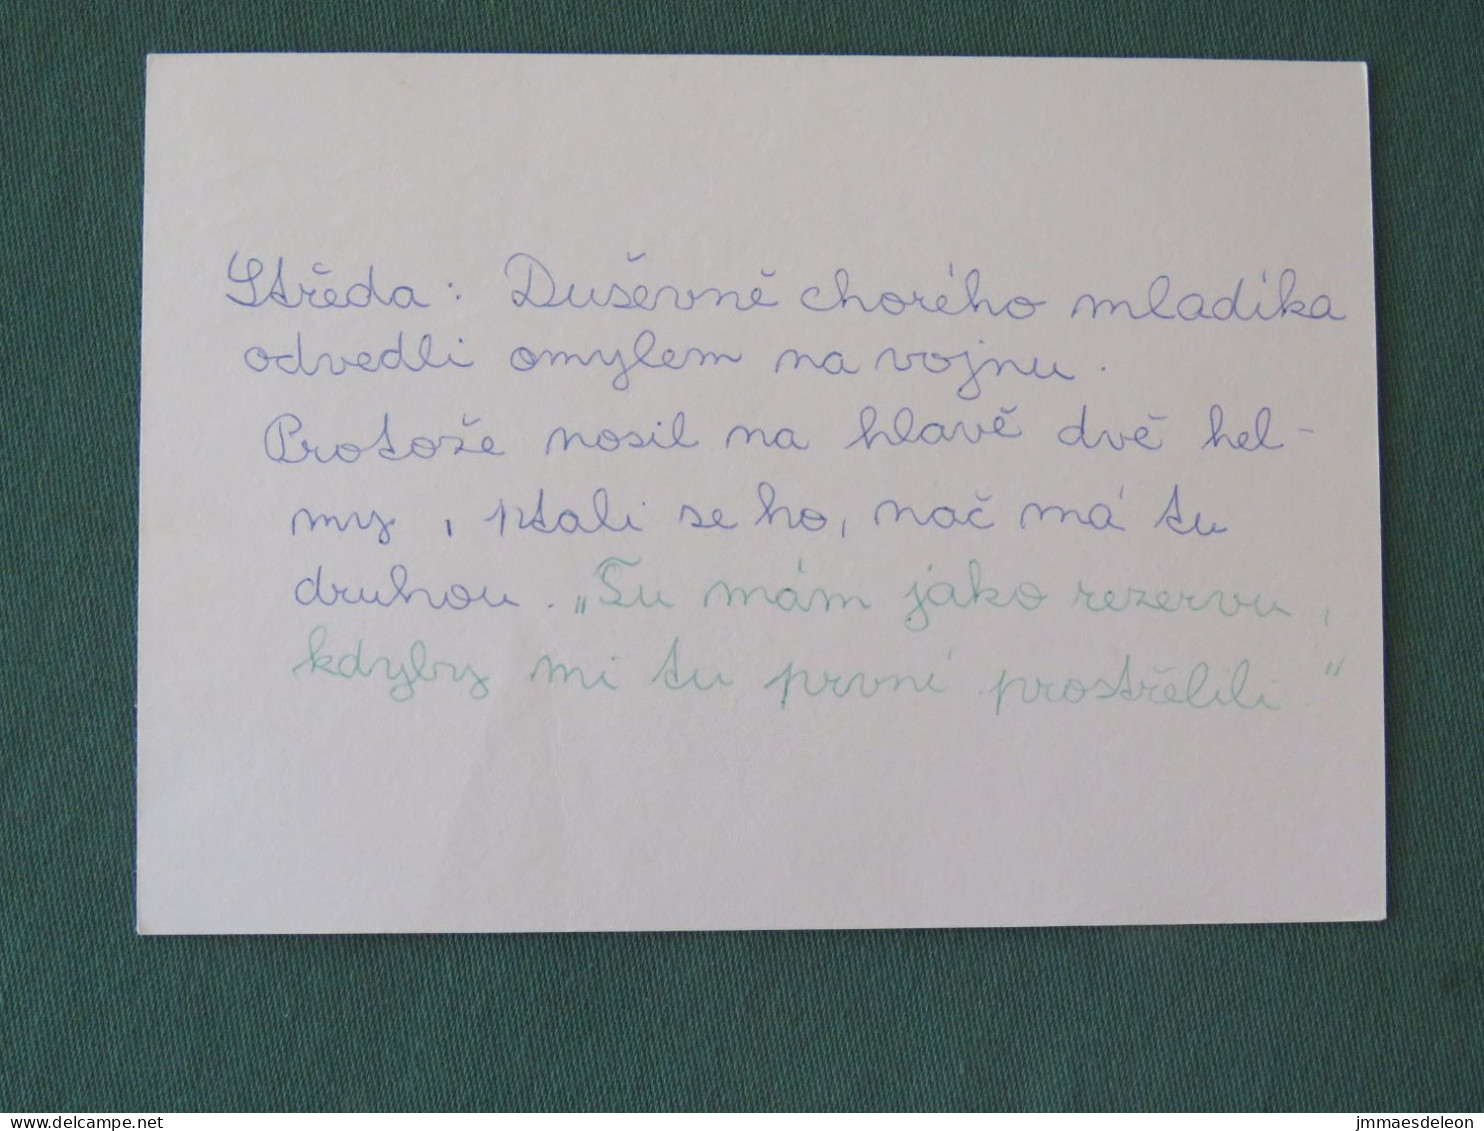 Středa: Duševně chorého mladíka
odvedli omylem na vojnu.
Protože nosil na hlavě dvě hel-
my, ptali se ho, nač má tu
druhou. „Tu mám jako rezervu,
kdyby mi tu první prostřelili.“
delcampe.net
jmmaesdeleon